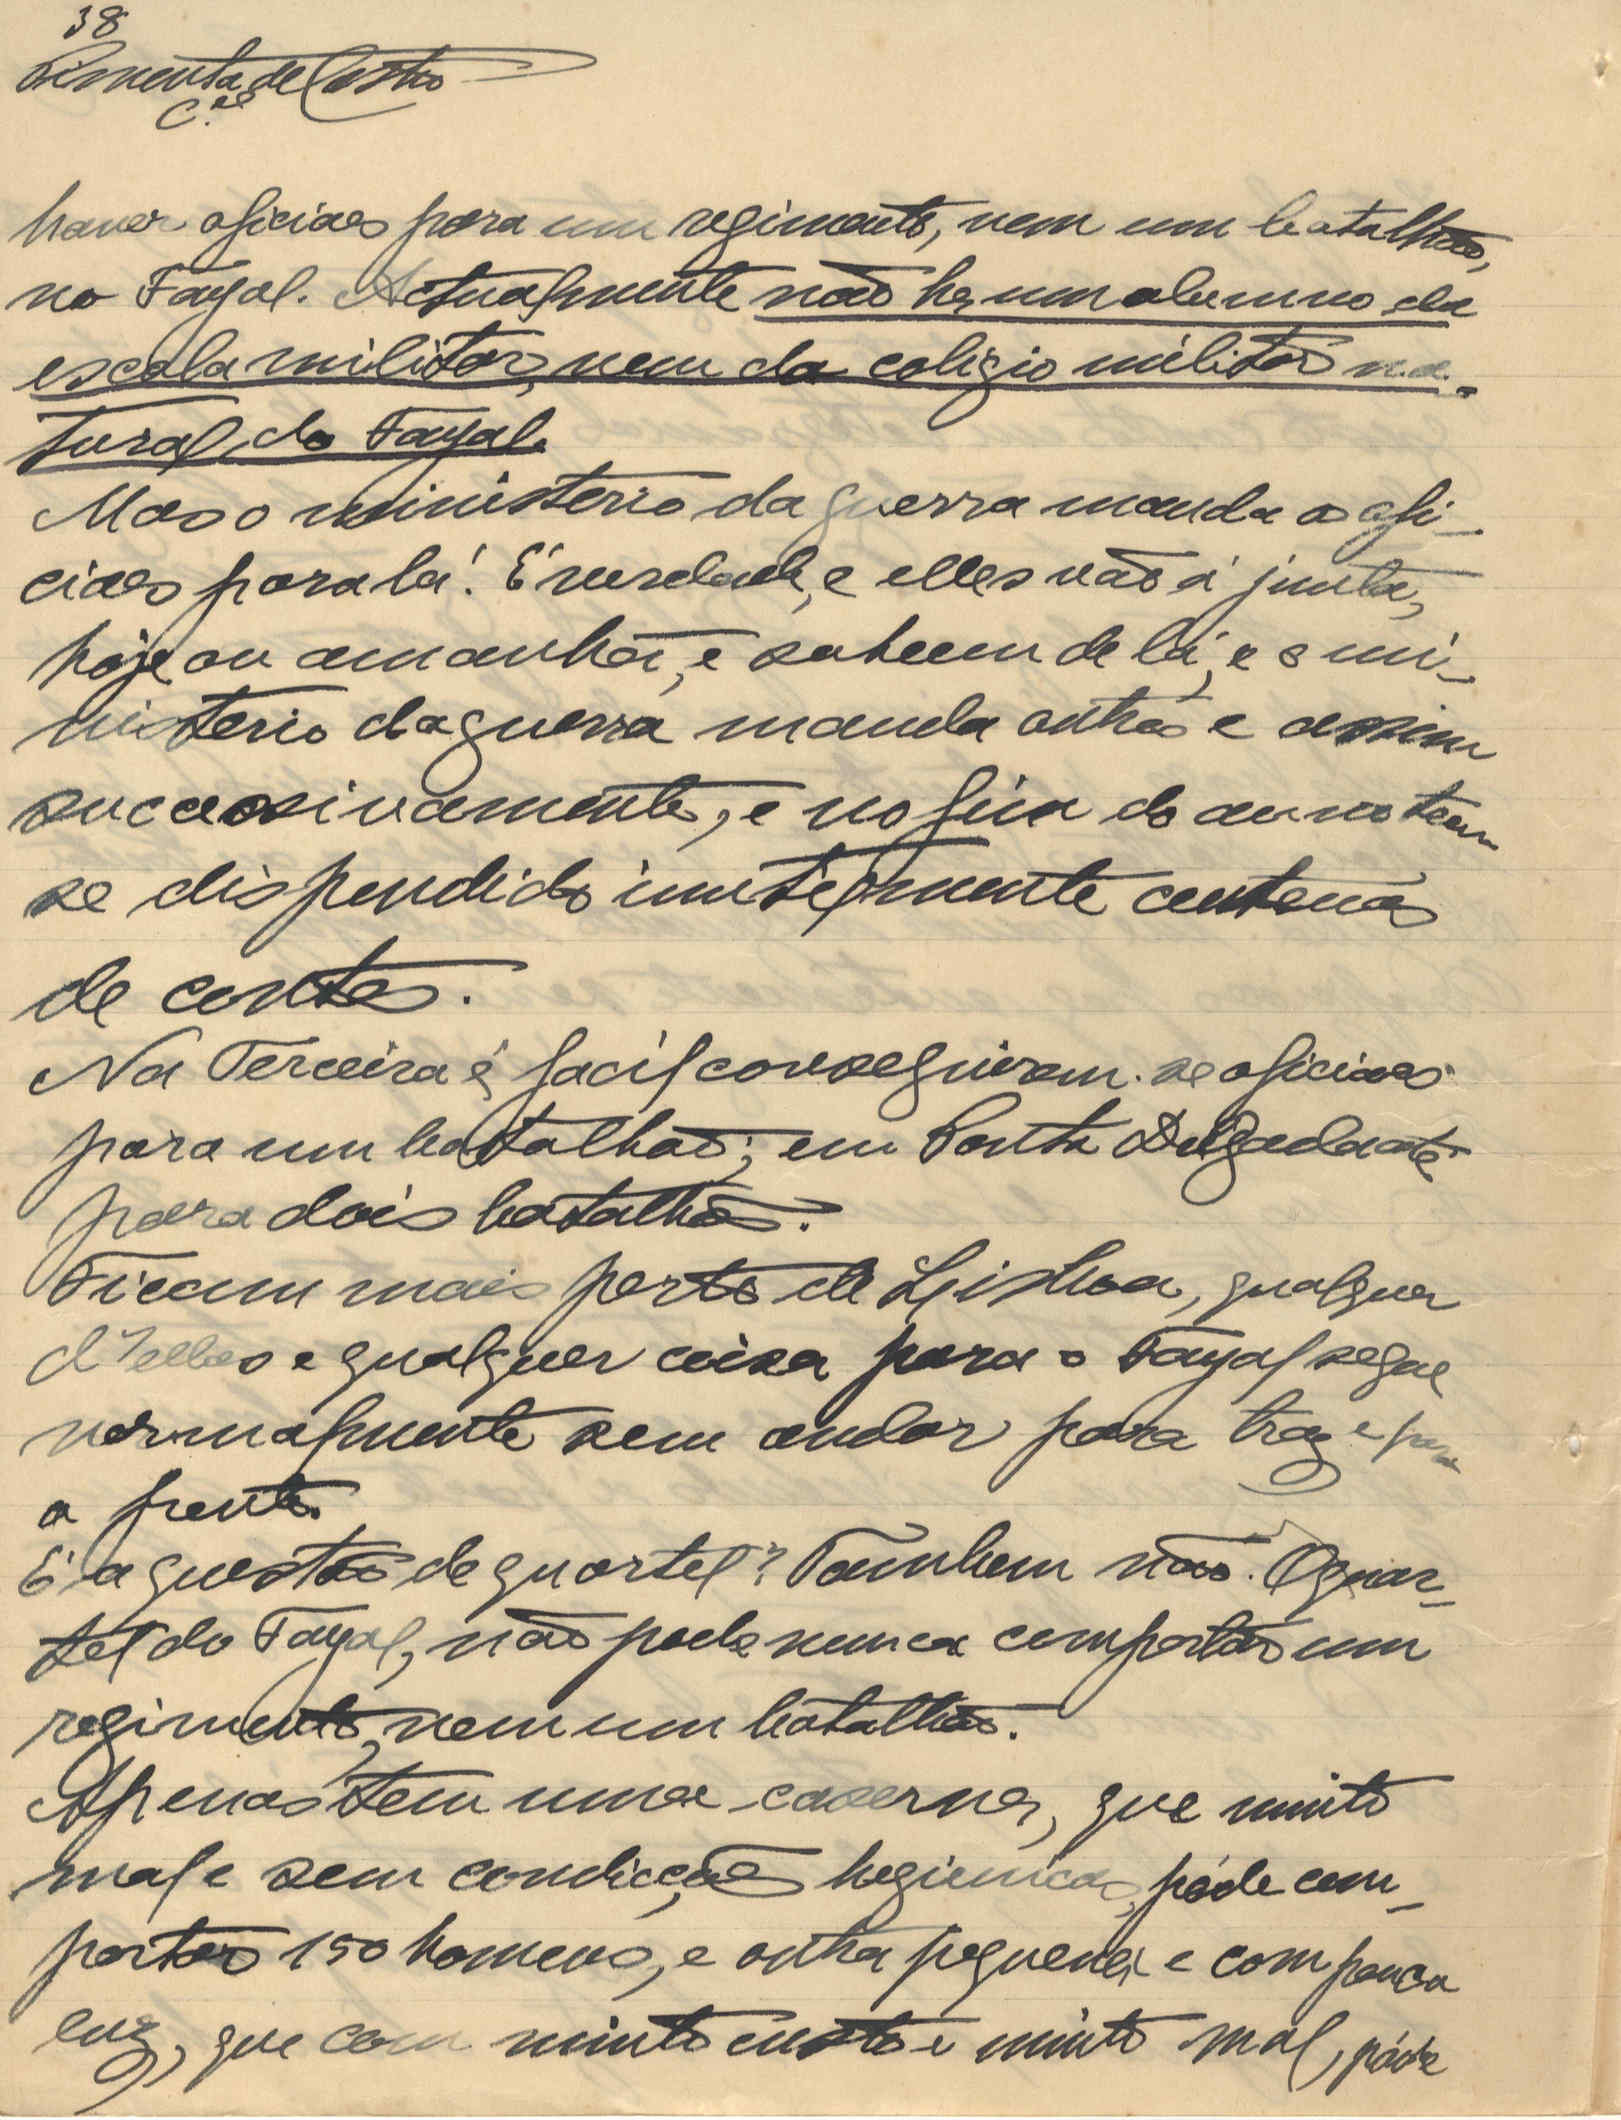 38
Pimenta de Castro
C.el
haver oficiaes para um regimento, nem um batalhão,
no Fayal. Actualmente não ha um alumno da
escola militar, nem do colegio militar na-
tural do Fayal.
Mas o ministerio da guerra manda os ofi-
ciaes para lá! É verdade, e elles vão á junta,
hoje ou amanhã, e sahem de lá, e o mi-
nisterio da guerra manda outros e assim
successivamente, e no fim do anno tem
se dispendido inutilmente centenas
de contos.
Na Terceira é facil conseguirem-se oficiaes
para um batalhão; em Ponta Delgada até
para dois batalhões.
Ficam mais perto de Lisboa, qualquer
d'elles e qualquer coisa para o Fayal segue
normalmente sem andar para traz e para
a frente.
É a questão de quartel? Tambem não. O quar-
tel do Fayal, não pode nunca comportar um
regimento, nem um batalhão.
Apenas tem uma caserna, que muito
mal e sem condicções hegienicas, póde com-
portar 150 homens, e outra pequena e com pouca
luz, que com muito custo e muito mal, póde